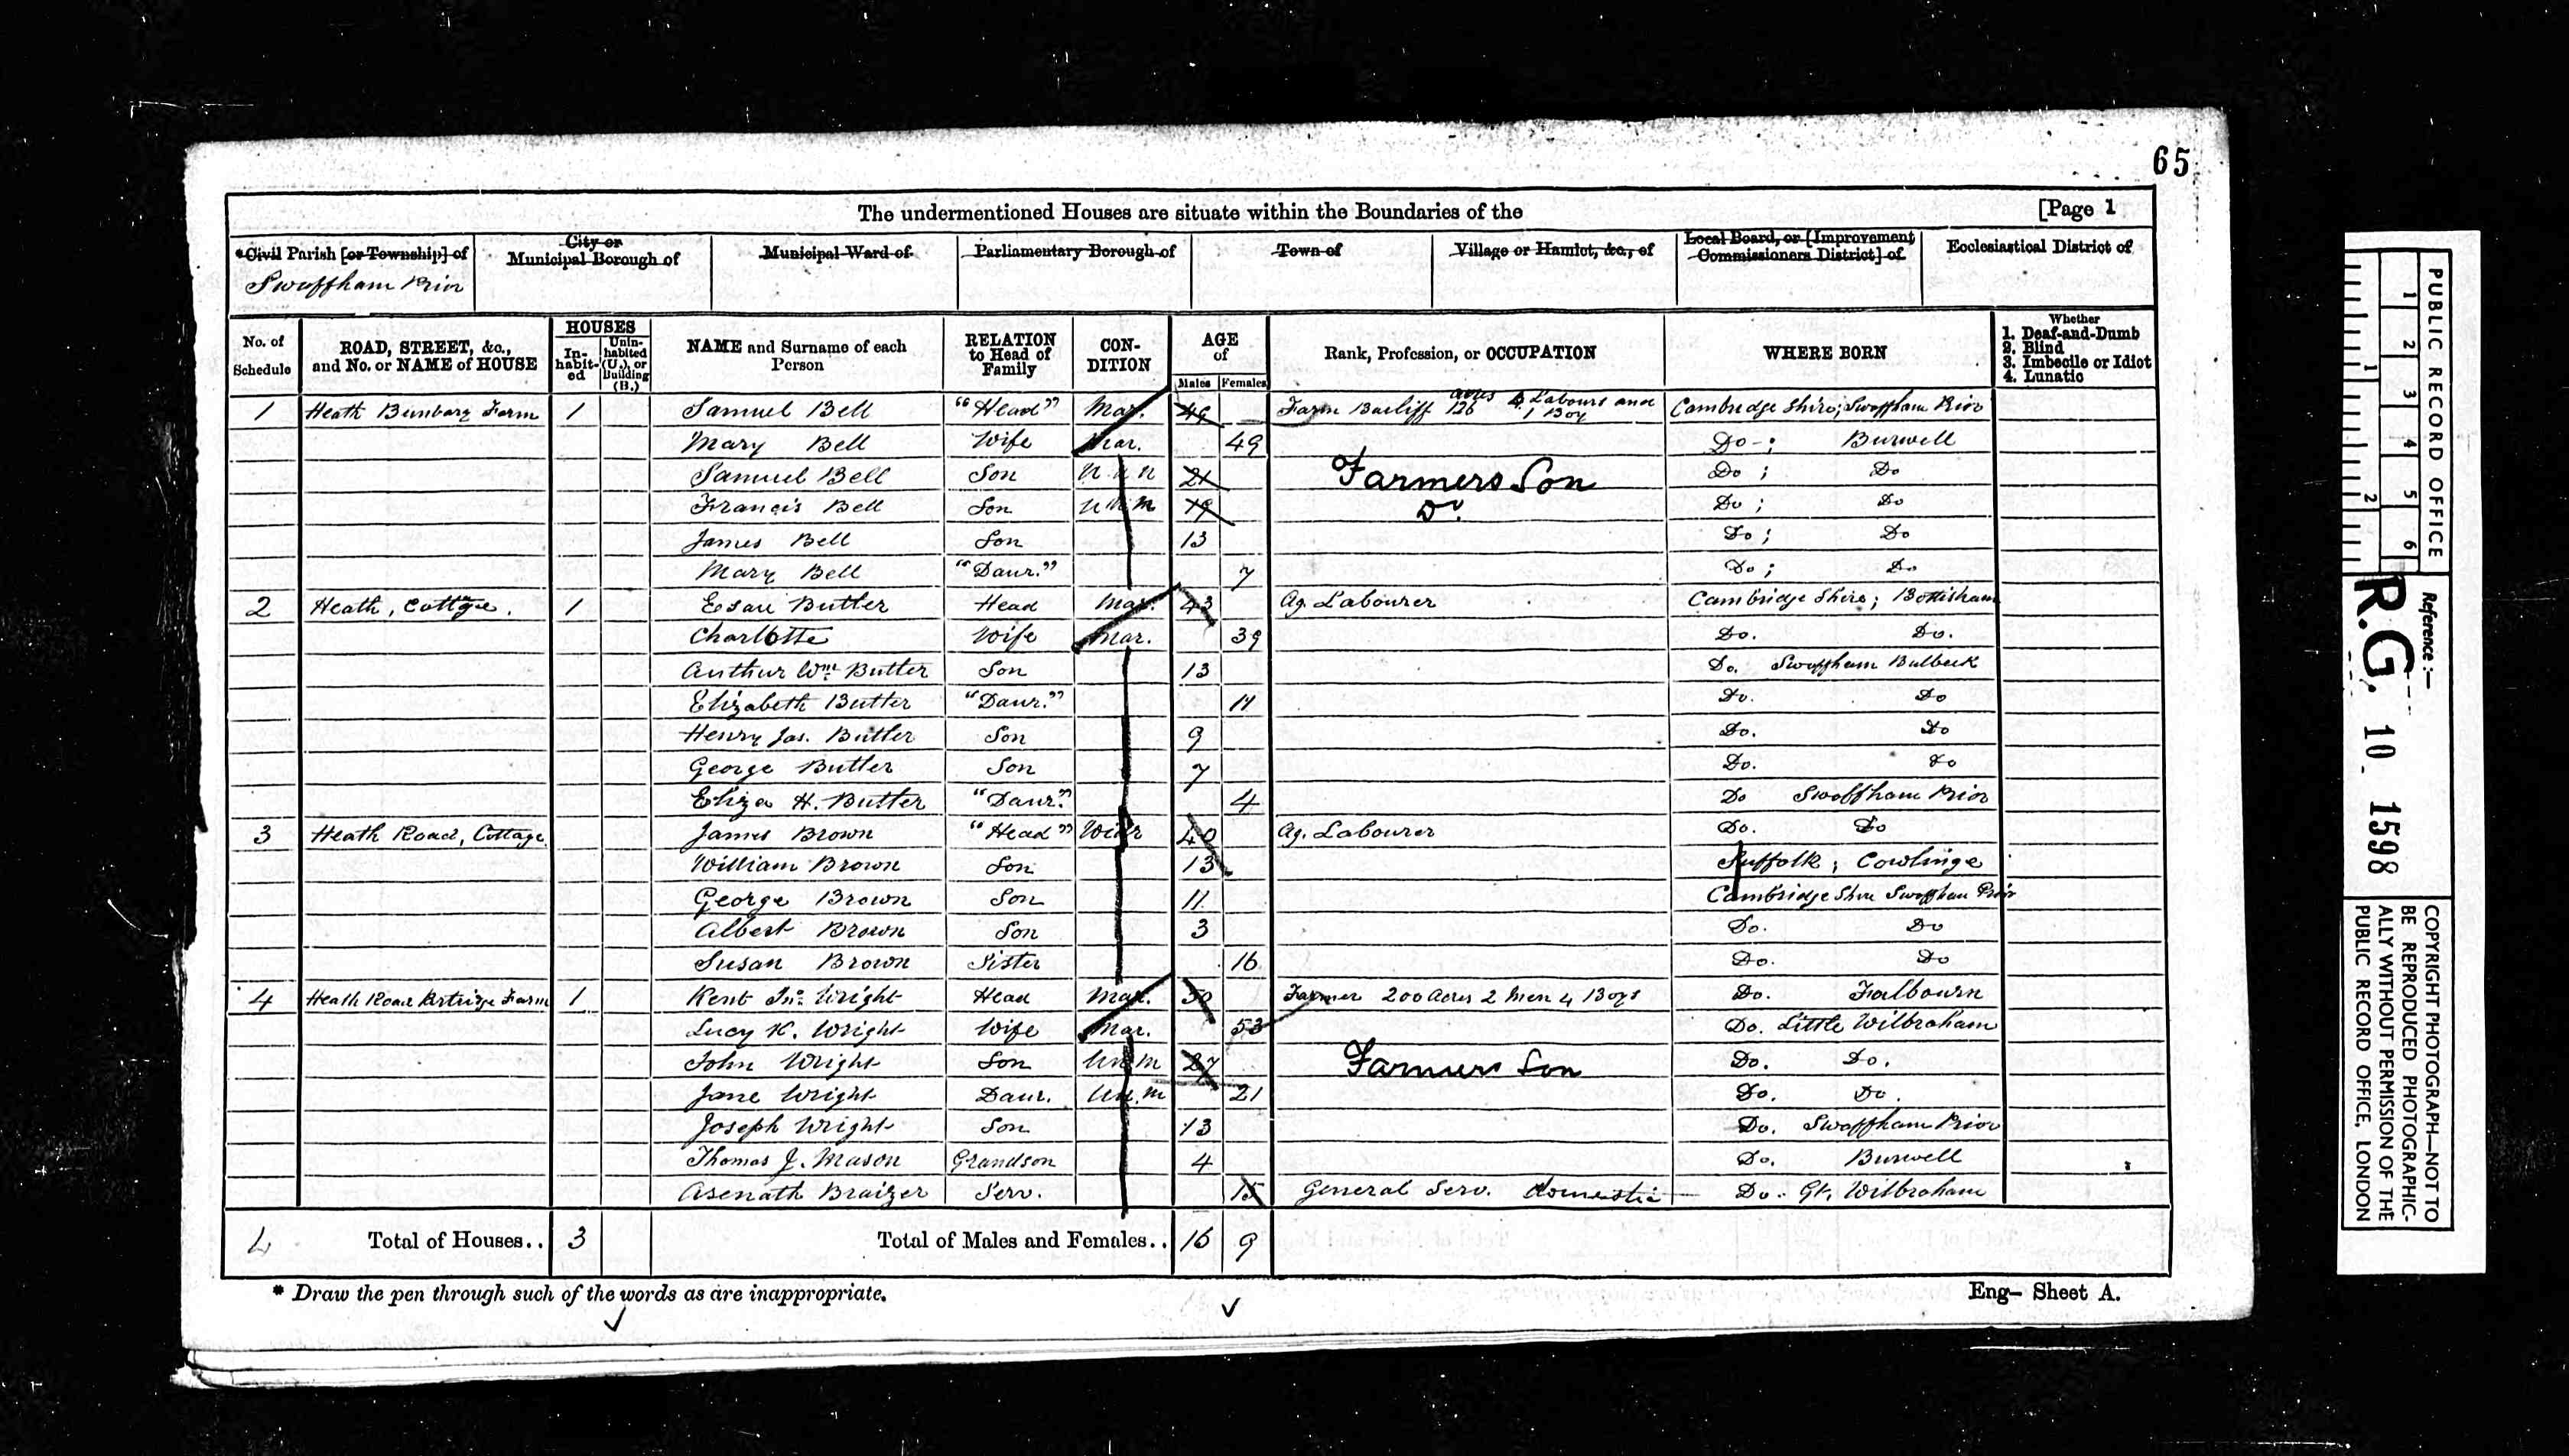 65
The undermentioned Houses are situate within the Boundaries of the [Page 1
*Civil Parish [or Township] of City or Municipal Borough of Municipal Ward of Parliamentary Borough of Town of Village or Hamlet, &c., of Local Board, or [Improvement Commissioners District] of Ecclesiastical District of
Swaffham Prior
No. of Schedule ROAD, STREET, &c., and No. or NAME of HOUSE HOUSES In-habit-ed Unin-habited (U.), or Building (B.) NAME and Surname of each Person RELATION to Head of Family CON-DITION AGE of Males Females Rank, Profession, or OCCUPATION WHERE BORN Whether 1. Deaf-and-Dumb 2. Blind 3. Imbecile or Idiot 4. Lunatic
1 Heath Farm 1 Samuel Bell "Head" Mar. 49 Farm Bailiff 126 acres Labours and 1 Boy Cambridge Shire; Swaffham Prior
Mary Bell Wife Mar. 49 Do-; Burwell
Samuel Bell Son 21 Farmers Son Do ; Do
Francis Bell Son 19 Do Do ; Do
James Bell Son 13 Do ; Do
Mary Bell "Daur." 7 Do ; Do
2 Heath, Cottage. 1 Esau Butler Head Mar. 43 Ag. Labourer Cambridge Shire; Bottisham
Charlotte Wife Mar. 39 Do. Do.
Authur Wm. Butler Son 13 Do. Swaffham Bulbeck
Elizabeth Butler "Daur." 11 Do. Do
Henry Jas. Butler Son 9 Do. Do
George Butler Son 7 Do. Do
Eliza H. Butler "Daur." 4 Do Swaffham Prior
3 Heath Road, Cottage James Brown "Head" Widr 40 Ag. Labourer Do. Do
William Brown Son 13 Suffolk ; Cowlinge
George Brown Son 11 Cambridge Shire Swaffham Prior
Albert Brown Son 3 Do. Do
Susan Brown Sister 16 Do. Do
4 Heath Road Partridge Farm 1 Kent Jno. Wright Head Mar. 50 Farmer 200 Acres 2 Men 4 Boys Do. Fulbourn
Lucy K. Wright Wife Mar. 53 Do. Little Wilbraham
John Wright Son Unm 27 Farmers Son Do. Do.
Jane Wright Daur. Unm 21 Do. Do.
Joseph Wright Son 13 Do. Swaffham Prior
Thomas J. Mason Grandson 4 Do. Burwell
Asenath Braizer Serv. 15 General Serv. domestic Do. Gt. Wilbraham
4 Total of Houses.. 3 Total of Males and Females.. 16 9
* Draw the pen through such of the words as are inappropriate. Eng- Sheet A.
PUBLIC RECORD OFFICE
1 2 3 4 5 6
1 2
Reference :-
R.G. 10 1598
COPYRIGHT PHOTOGRAPH—NOT TO
BE REPRODUCED PHOTOGRAPHIC-
ALLY WITHOUT PERMISSION OF THE
PUBLIC RECORD OFFICE, LONDON